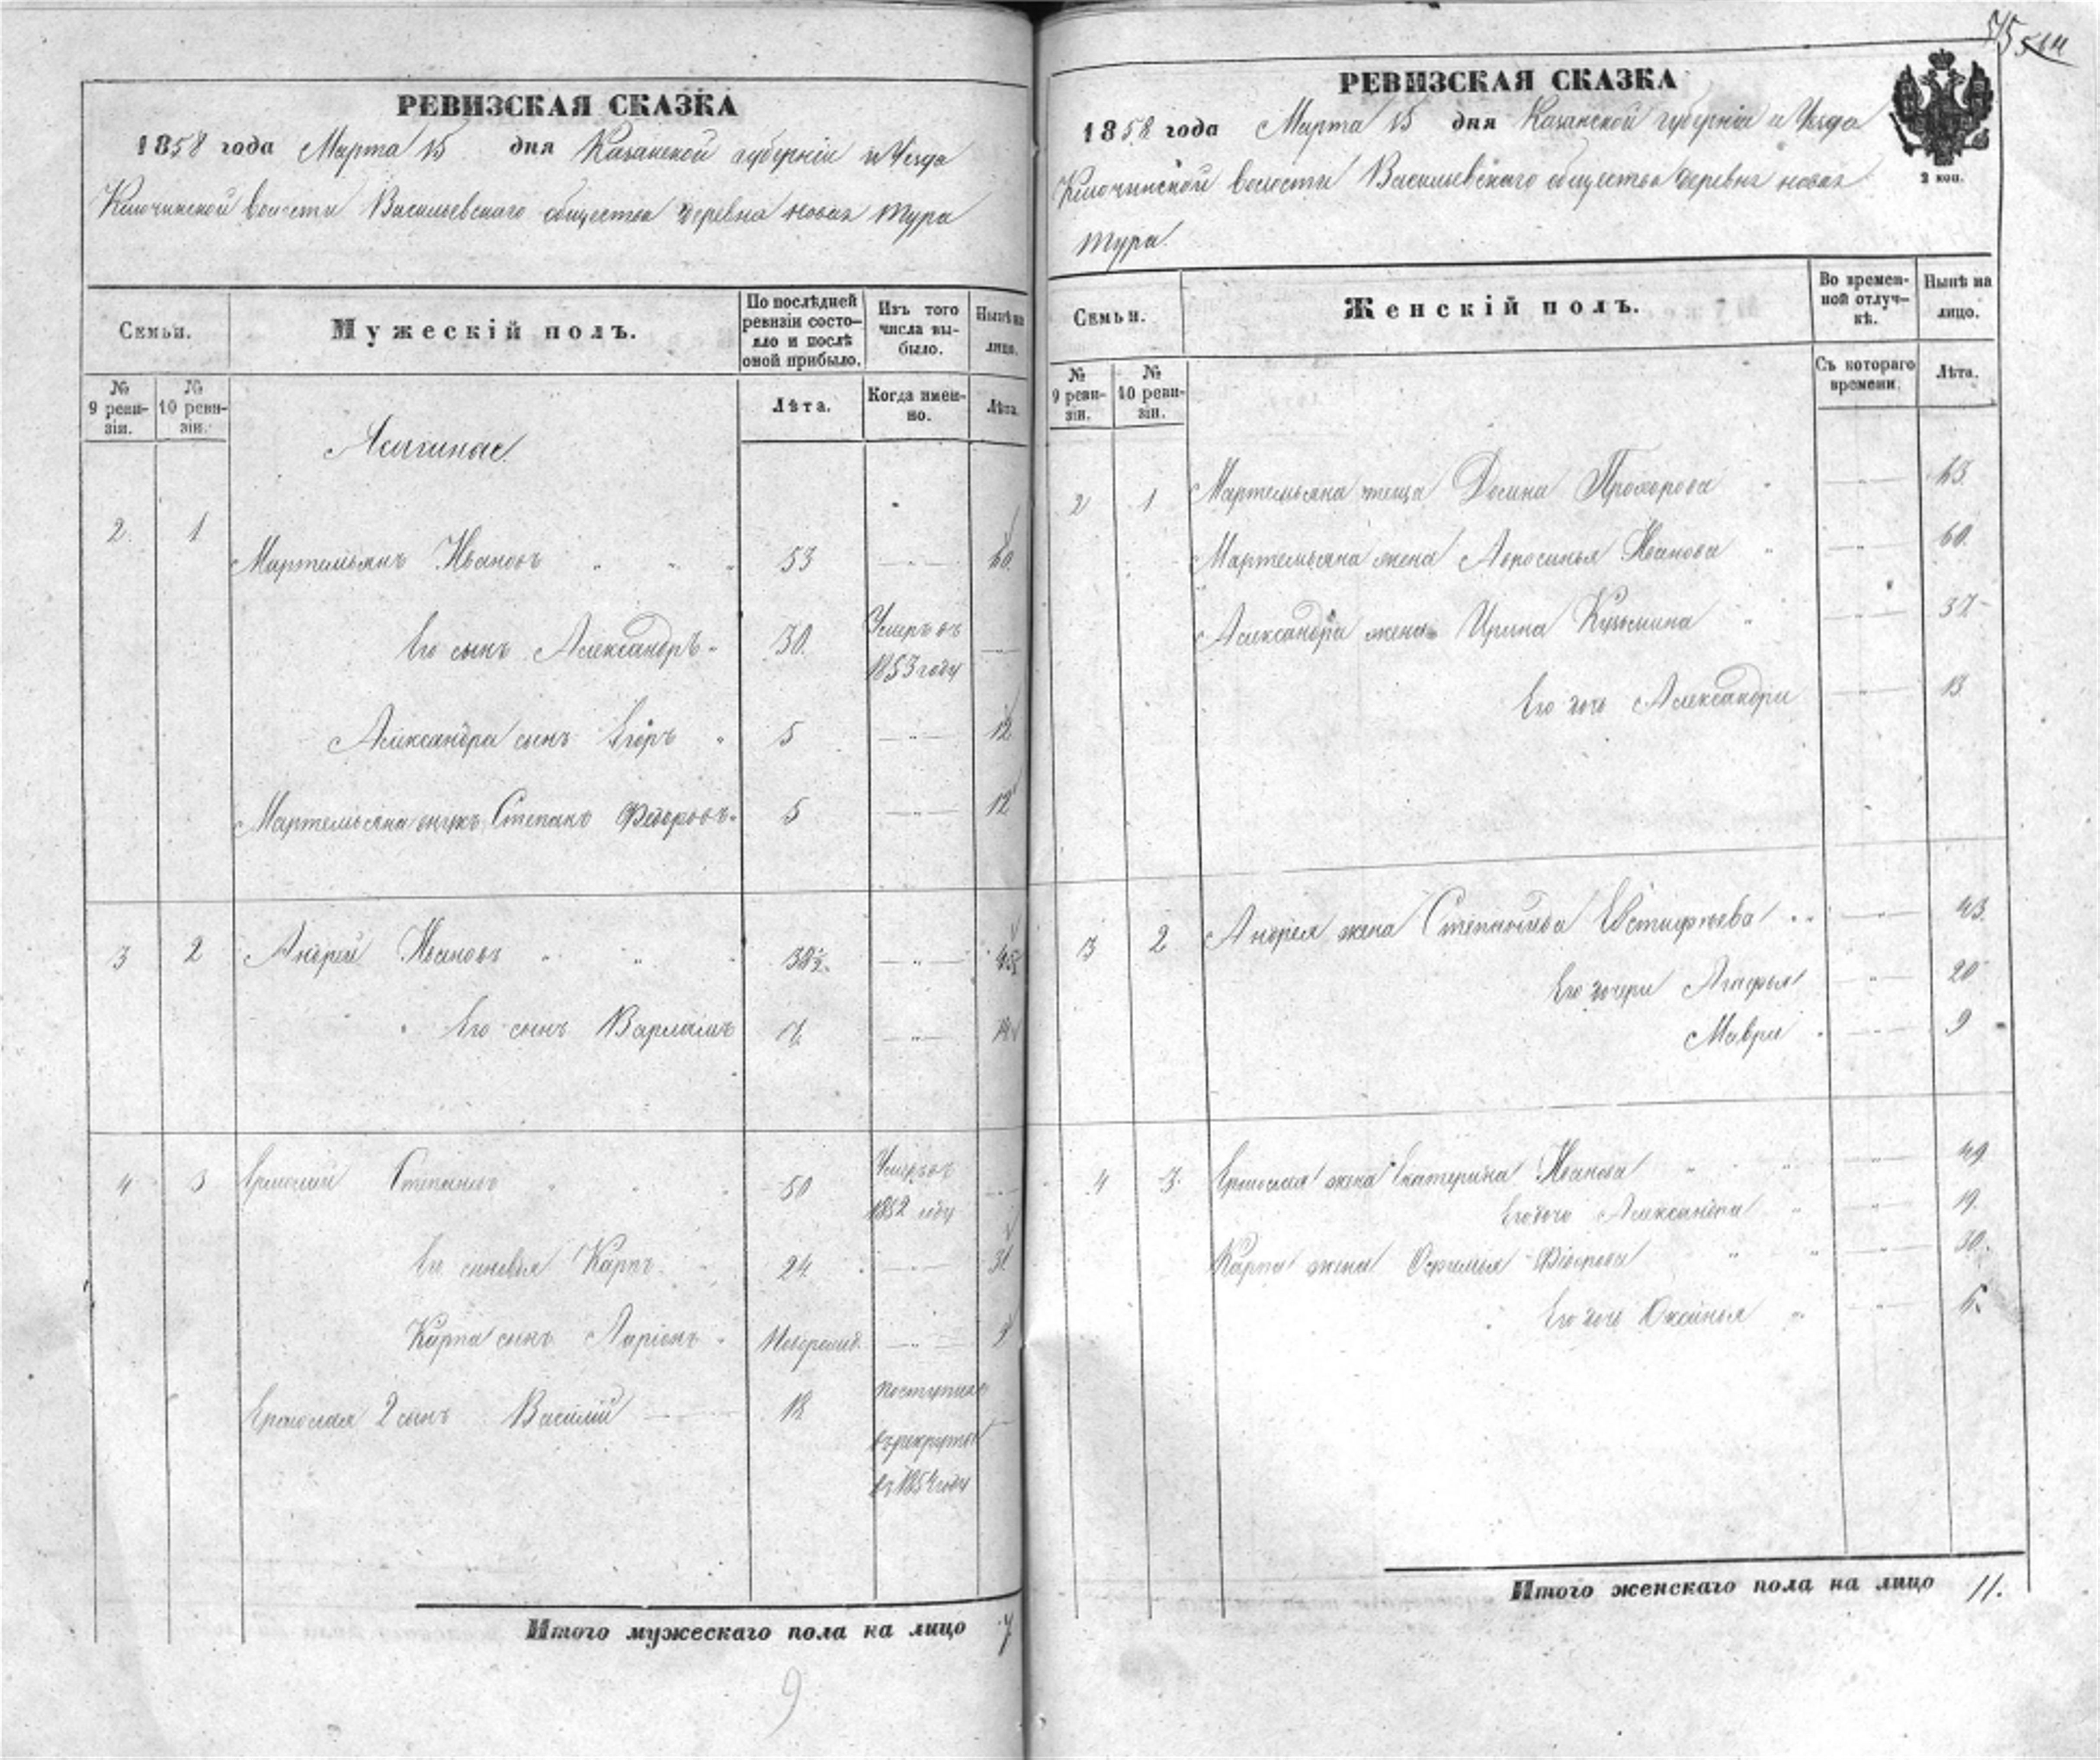 РЕВИЗСКАЯ СКАЗКА
1858 года Марта 15 дня Казанской губерніи и Уезда
Ключинской волости Васильевскаго общества деревна новая тура
Семьи.
Мужескій полъ.
По послѣдней ревизіи состояло и послѣ оной прибыло.
Изъ того числа выбыло.
Нынѣ на лицо.
№ 9 ревизіи.
№ 10 ревизіи.
Лѣта.
Когда именно.
Лѣта.
2. 1 Мартемьянъ Ивановъ 53 60.
Его сынъ Александръ 30. Умеръ въ 1853 году
Александра сынъ Егоръ 5 12
Мартемьяна внукъ Степанъ Федоровъ 5 12
3 2 Андрей Ивановъ 38½
Его сынъ Варламъ
4 3 Степановъ 50 Умеръ въ 1852 году
Его сыновья Карпъ 24 31
Карпа сынъ Ларіонъ Новорожд.
Ермолая 2 сынъ Василій 18 поступилъ
въ рекруты
въ 1854 году
Итого мужескаго пола на лицо 7
9
515
РЕВИЗСКАЯ СКАЗКА
1858 года Марта 15 дня Казанской губерніи и Уезда
2 коп.
Ключинской волости Васильевскаго общества деревнѣ новая
тура.
Семьи.
Женскій полъ.
Во временной отлучкѣ.
Нынѣ на лицо.
№ 9 ревизіи.
№ 10 ревизіи.
Съ котораго времени.
Лѣта.
2 1 Мартемьяна теща Домна Прохорова
Мартемьяна жена Афросинья Иванова 60.
Александра жена Ирина Кузьмина 37
Его дочь Александра 13
3 2 Андрея жена Степанида Евстифѣева 43.
Его дочери Агафья 20
Мавра 9
4 3. Ермолая жена Екатерина Иванова 49
Его дочь Александра 19.
Карпа жена Офимья Федорова 30.
Его дочь Оксинья
Итого женскаго пола на лицо 11.